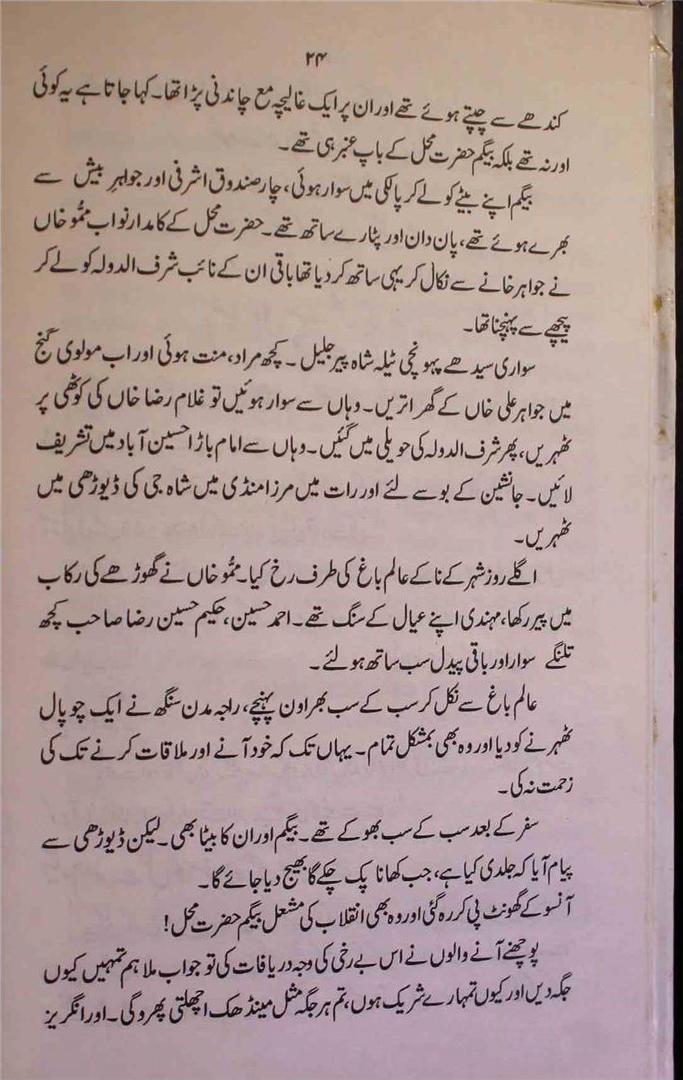 ۲۴
کندھے سے چپٹے ہوئے تھے اور ان پر ایک غالیچہ مع چاندنی پڑا تھا۔ کہا جاتا ہے یہ کوئی
اور نہ تھے بلکہ بیگم حضرت محل کے باپ عنبر ہی تھے۔
بیگم اپنے بیٹے کو لے کر پالکی میں سوار ہوئی، چار صندوق اشرفی اور جواہر بیش سے
بھرے ہوئے تھے، پان دان اور پٹارے ساتھ تھے۔ حضرت محل کے کامدار نواب ممّو خاں
نے جواہر خانے سے نکال کر یہی ساتھ کر دیا تھا باقی ان کے نائب شرف الدولہ کو لے کر
پیچھے سے پہنچنا تھا۔
سواری سیدھے پہونچی ٹیلہ شاہ پیر جلیل ۔ کچھ مراد، منت ہوئی اور اب مولوی گنج
میں جواہر علی خاں کے گھر اتریں۔ وہاں سے سوار ہوئیں تو غلام رضا خاں کی کوٹھی پر
ٹھہریں، پھر شرف الدولہ کی حویلی میں گئیں۔ وہاں سے امام باڑا حسین آباد میں تشریف
لائیں۔ جانشین کے بوسے لئے اور رات میں مرزا منڈی میں شاہ جی کی ڈیوڑھی میں
ٹھہریں۔
اگلے روز شہر کے ناکے عالم باغ کی طرف رخ کیا۔ ممّو خاں نے گھوڑھے کی رکاب
میں پیر رکھا، مہندی اپنے عیال کے سنگ تھے۔ احمد حسین، حکیم حسین رضا صاحب کچھ
تلنگے سوار اور باقی پیدل سب ساتھ ہولئے۔
عالم باغ سے نکل کر سب کے سب بھراون پہنچے، راجہ مدن سنگھ نے ایک چوپال
ٹھہرنے کو دیا اور وہ بھی بمشکل تمام۔ یہاں تک کہ خود آنے اور ملاقات کرنے تک کی
زحمت نہ کی۔
سفر کے بعد سب کے سب بھوکے تھے۔ بیگم اور ان کا بیٹا بھی۔ لیکن ڈیوڑھی سے
پیام آیا کہ جلدی کیا ہے، جب کھانا پک چکے گا بھیج دیا جائے گا۔
آنسو کے گھونٹ پی کر رہ گئی اور وہ بھی انقلاب کی مشعل بیگم حضرت محل!
پوچھنے آنے والوں نے اس بے رخی کی وجہ دریافت کی تو جواب ملا ہم تمہیں کیوں
جگہ دیں اور کیوں تمہارے شریک ہوں، تم ہر جگہ مثل مینڈھک اچھلتی پھروگی۔ اور انگریز